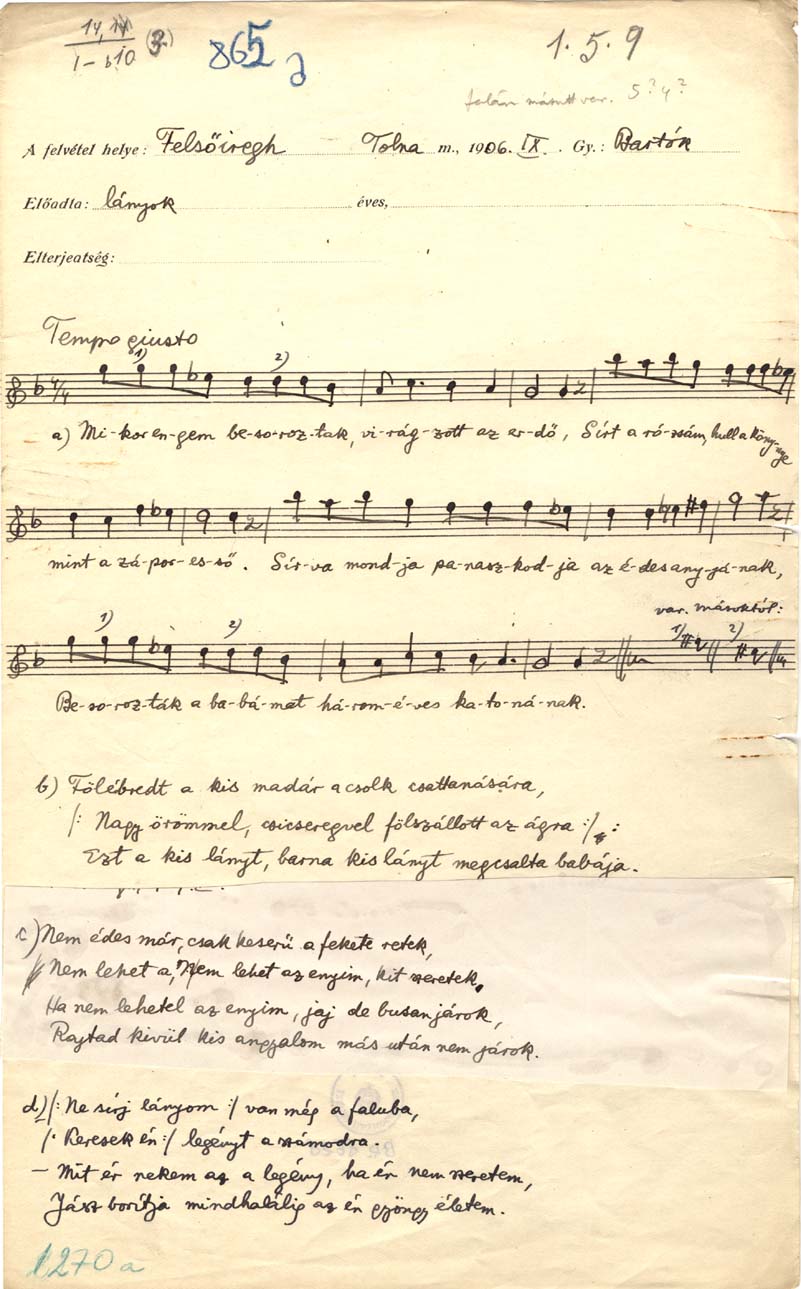 14, 14
I – b10
(3.)
865
1. 5. 9
talán másutt var. 5? 4?
A felvétel helye: Felsőiregh Tolna m., 1906. IX. Gy.: Bartók
Előadta: lányok éves,
Elterjeatség:
Tempo giusto
1) 2)
4/4
a) Mi-kor en-gem be-so-roz-tak, vi-rág-zott az er-dő, Sírt a ró-zsám, hull a köny-nye
mint a zá-por-es-ső. Sír-va mond-ja pa-nasz-kod-ja az é-des any-já-nak,
var. másoktól:
1) 2) 1) 2)
Be-so-roz-ták a ba-bá-mat há-rom-é-ves ka-to-ná-nak.
b) Fölébredt a kis madár a csolk csattanására,
/: Nagy örömmel, csicseregvel fölszállott az ágra :/
Ezt a kis lányt, barna kis lányt megcsalta babája.
c) Nem édes már, csak keserü a fekete retek,
Nem lehet a, Nem lehet az enyim, kit szeretek,
Ha nem lehetel az enyim, jaj de busan járok,
Rajtad kivül kis angyalom más után nem járok.
d) /: Ne sírj lányom :/ van még a faluba,
/: Keresek én :/ legényt a számodra.
– Mit ér nekem az a legény, ha én nem szeretem,
Gyász borítja mindhalálig az én gyöngy életem.
1270a